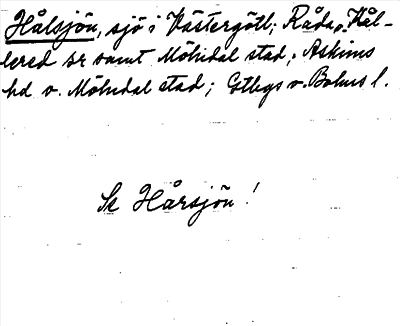 Hålsjön, sjö i Västergötl; Råda o. Kål-
lered sr samt Mölndal stad; Askims
hd o. Mölndal stad; Gtbgs o. Bohus l.
Se Hårsjön!